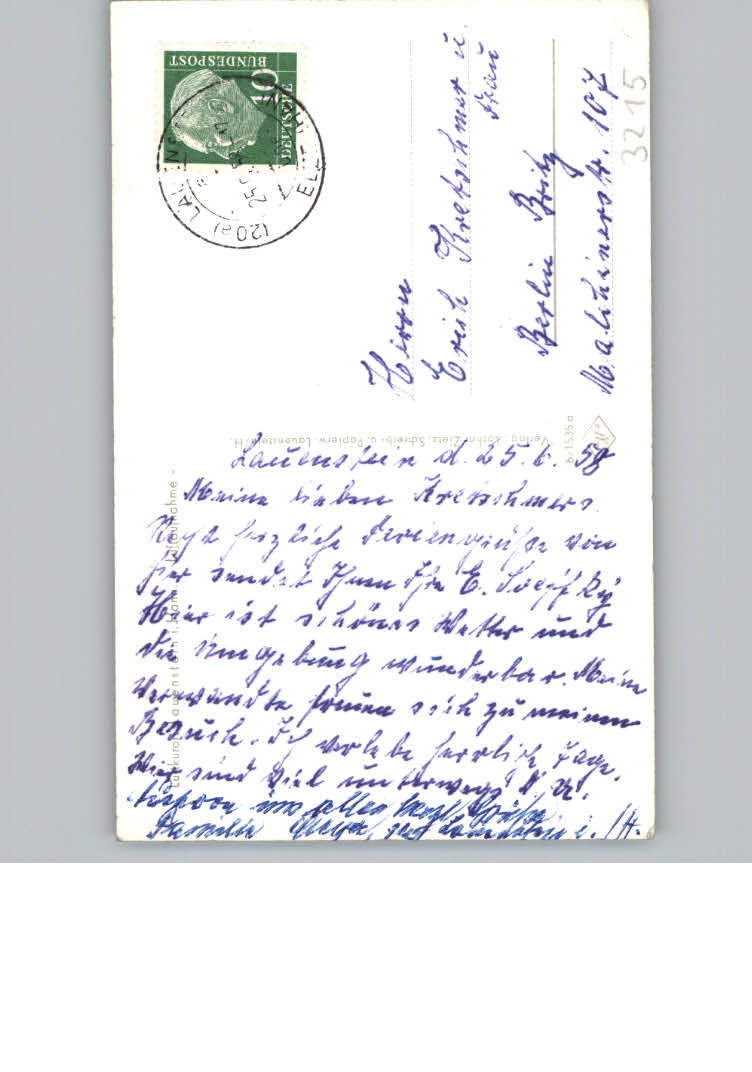 DEUTSCHE
BUNDESPOST
10
(20a) LAUENS
ELZE (HAN
25
Herrn
Erich Kretschmer u.
Frau
Berlin Britz
Malchinerstr. 107
3215
Verlag Lothar Zietz, Schreib- u. Papierw. Lauenstein/H.
b/1535a
Luftkurort Lauenstein i. Hann. - Luftaufnahme -
Lauenstein d. 25.6.58
Meine lieben Kretschmers.
Recht herzliche Feriengrüße von
hier sendet Ihnen Ihre E.
Hier ist schönes Wetter und
die Umgebung wunderbar. Meine
Verwandte freuen sich zu meinem
Besuch. Ich verlebe herrliche Tage.
Wir sind viel unterwegs
uns allen herzl. Grüße
Familie Lauenstein i. H.